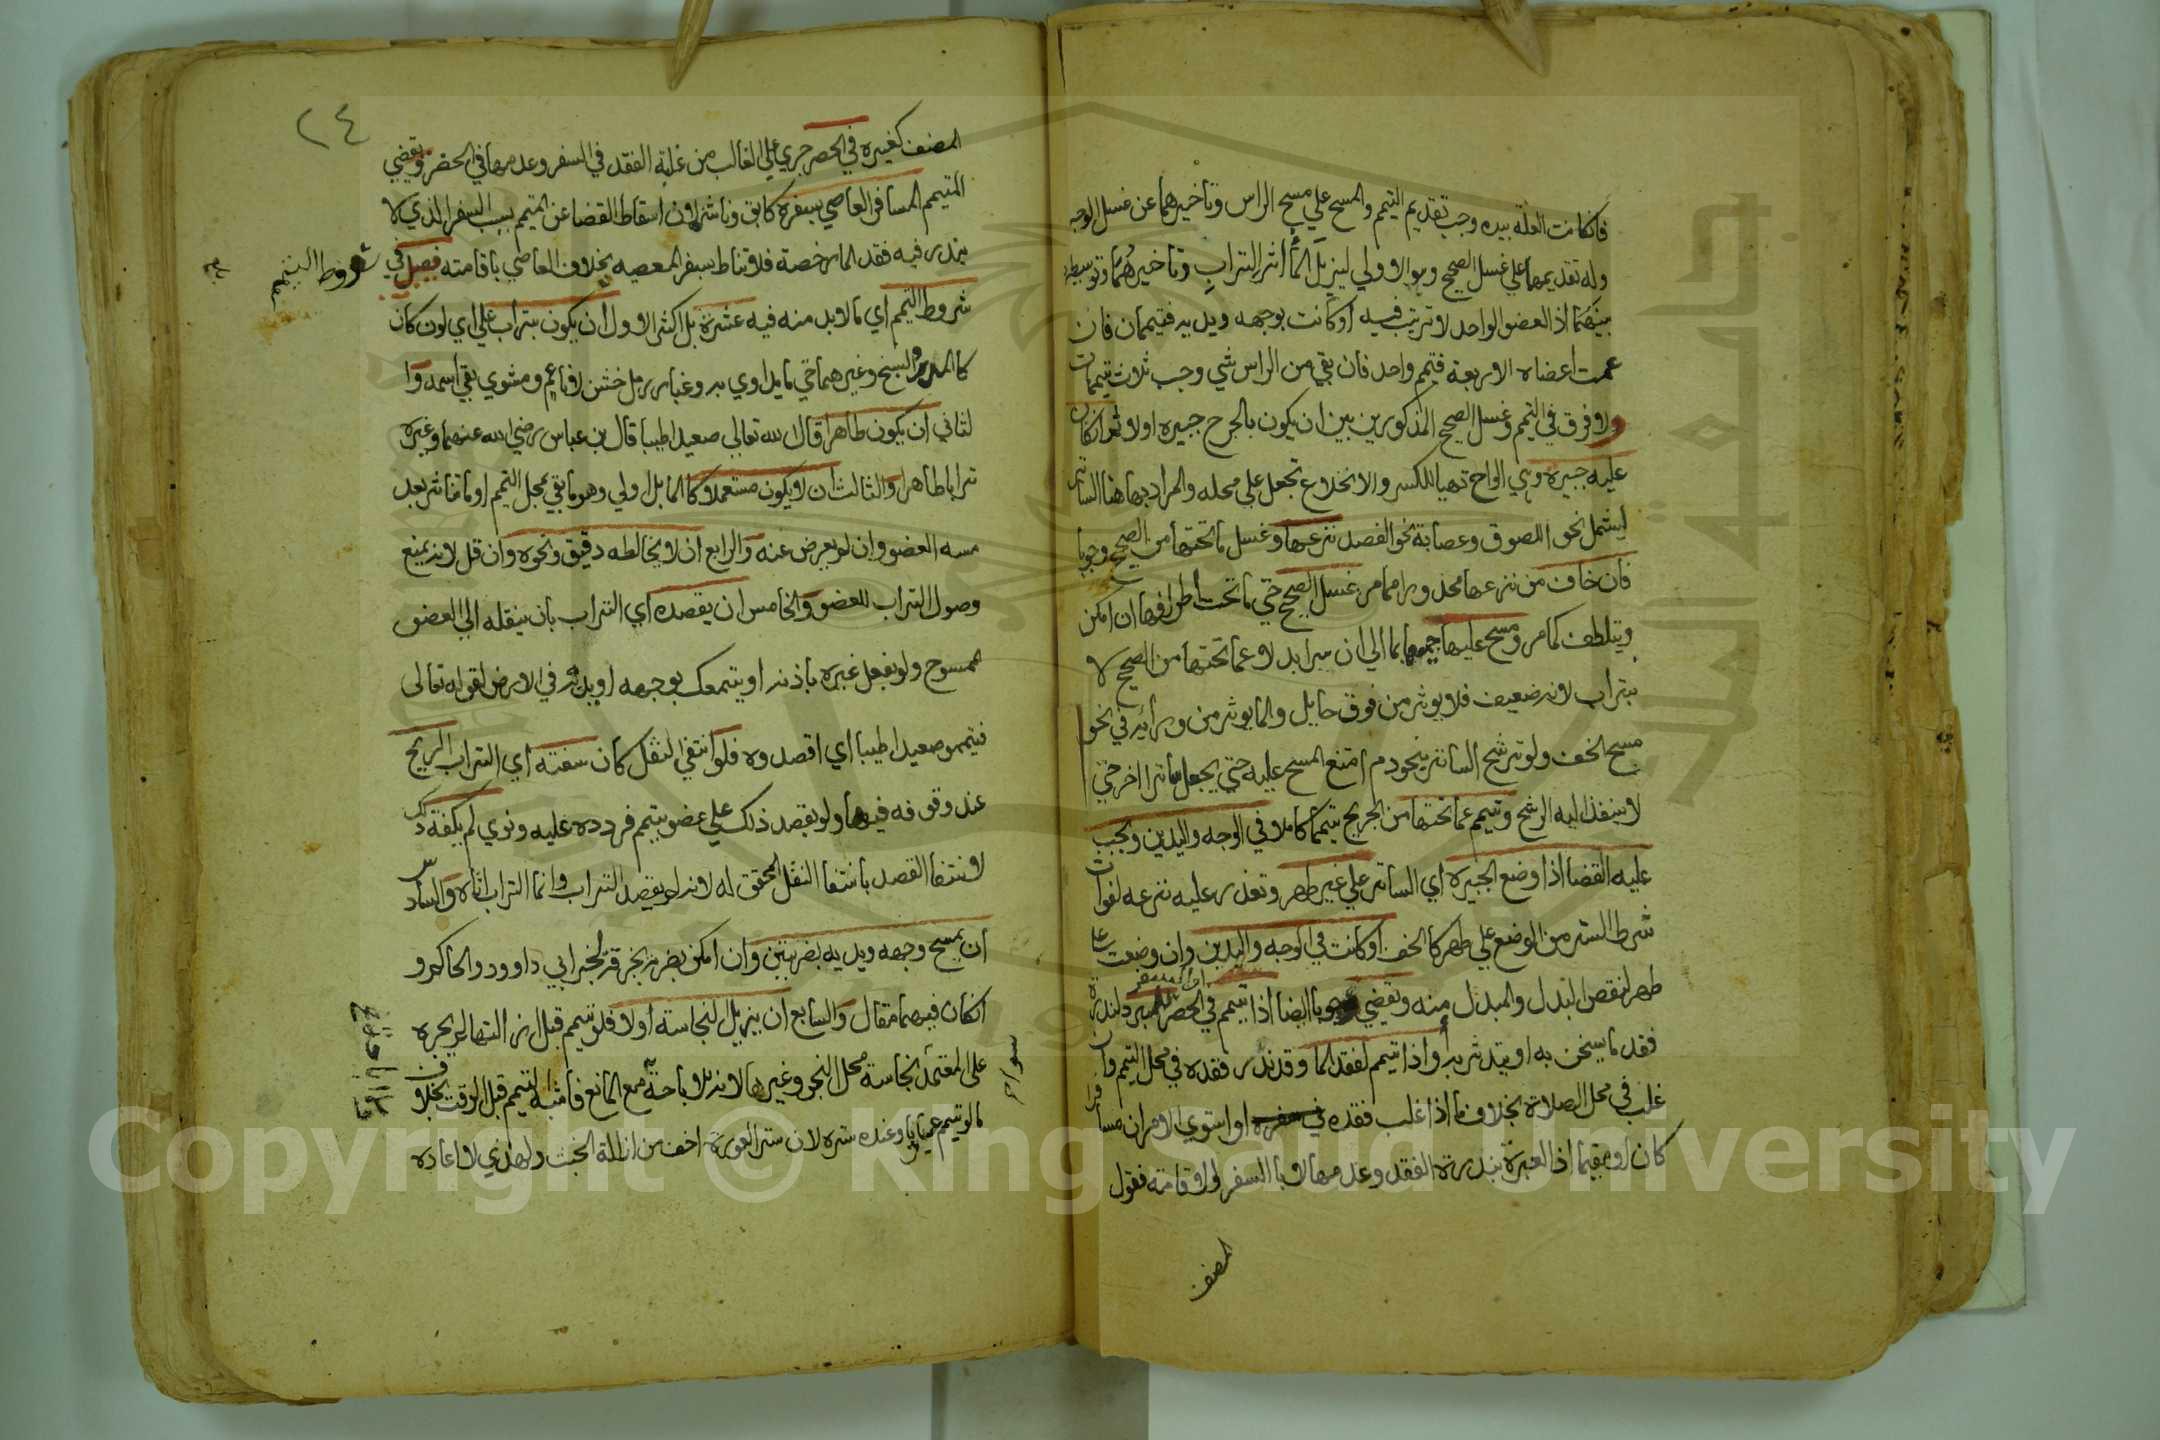 فانكانت العلة بيده وجب تقديم التيمم والمسح علي مسح الراس وتاخيرهما عن غسل الوجه
وله تقديمهما علي غسل الصحيح وهو الاولي ليزيل الماأ اثر التراب وتاخيرهما وتوسطه
بينهما اذ العضو الواحد لا ترتيب فيه أو كانت بوجهه ويديه فتيممان فان
عمت اعضاه الاربعة فتيمم واحد فان بقي من الراس شي وجب ثلاث تيممات
ولا فرق في التيمم وغسل الصحيح المذكورين بين ان يكون بالجرح جبيرة اولا ثم انكان
عليه جبيرة وهي الواح تهيا للكسر والانخلاع تجعل علي محله والمراد بها هنا الساتر
ليشمل نحو اللصوق وعصابة نحو الفصد نزعها وغسل ماتحتها من الصحيح وجوبا
فان خاف من نزعها محذورا مما مر غسل الصحيح حتي ماتحت أطرافها ان امكن
ويتلطف كما مر ومسح عليها جميعها بما الي ان يبرا بدلا عما تحتها من الصحيح لا
بتراب لانه ضعيف فلا يوثر من فوق حايل والما يوثر من ورائه في نحو
مسح الخف ولو ترشح الساتر بنحو دم امتنع المسح عليه حتي يجعل ساترا اخر حتي
لا ينفذ اليه الرشح وتيمم عما تحتها من الجريح تيمما كاملا في الوجه واليدين ويجب
عليه القضا اذا وضع الجبيرة اي الساتر علي غير طهر وتعذر عليه نزعه لفوات
شرط الستر من الوضع علي طهر كالخف أو كانت في الوجه واليدين وان وضعت علي
طهر لنقص البدل والمبدل منه ويقضي وجوبا ايضا اذا تيمم في الحضر للبرد لندرة
او السفر
فقد ما يسخن به او يتدثر به أو اذا تيمم لفقد الما وقد ندر فقده في محل التيمم وان
غلب في محل الصلاة بخلاف ما اذا غلب فقده او استوي الامران مسافرا
كان او مقيما اذ العبرة بندرة الفقد وعدمها لا با السفر والاقامة فقول
المصنف
٢٤
المصنف كغيره في الحضر جري علي الغالب من غلبة الفقد في السفر وعدمها في الحضر ويقضي
المتيمم المسافر العاصي بسفره كابق وناشز لان اسقاط القضا عن المتيمم بسبب السفر الذي لا
يندر فيه فقد الما رخصة فلا تناط بسفر المعصيه بخلاف العاصي باقامته فصل في
شروط التيمم
شروط التيمم أي مالابد منه فيه عشرة بل اكثر الاول أن يكون بتراب علي اي لون كان
كالمدر والسبخ وغيرهما حتي مايداوي به وغبار رمل خشن لا ناعم ومشوي بقي اسمه وا
لثاني ان يكون طاهرا قال الله تعالي صعيدا طيبا قال بن عباس رضي الله عنهما وغيره
ترابا طاهرا والثالث أن لا يكون مستعملا كالما بل اولي وهو مابقي بمحل التيمم او ماتناثر بعد
مسه العضو وان لم يعرض عنه والرابع ان لا يخالطه دقيق ونحوه وان قل لانه يمنع
وصول التراب للعضو والخامس ان يقصده اي التراب بان ينقله الي العضو
الممسوح ولو بفعل غيره باذنه او يتمعك بوجهه او يديه في الارض لقوله تعالي
فتيمموا صعيدا طيبا أي اقصدوه فلو انتفي النقل كأن سفته أي التراب الريح
عند وقوفه فيها ولو بقصد ذلك علي عضو تيمم فردده عليه ونوي لم يكفه ذلك
لانتفا القصد بانتفا النقل المحقق له لانه لم يقصد التراب وانما التراب اتاه والسادس
أن يمسح وجهه ويديه بضربتين وان امكن بضربة بخرقة لخبر ابي داوود والحاكم و
انكان فيهما مقال والسابع ان يزيل النجاسة أولا فلو تيمم قبل ازالتها لم يجزه
علي المعتمد نجاسة محل النجو وغيرها لانه للاباحة مع المانع فاشبه التيمم قبل الوقت بخلاف
سوا
مالو تيمم عريانا وعنده سترة لان ستر العورة اخف من ازالة الخبث ولهذي لا اعاده